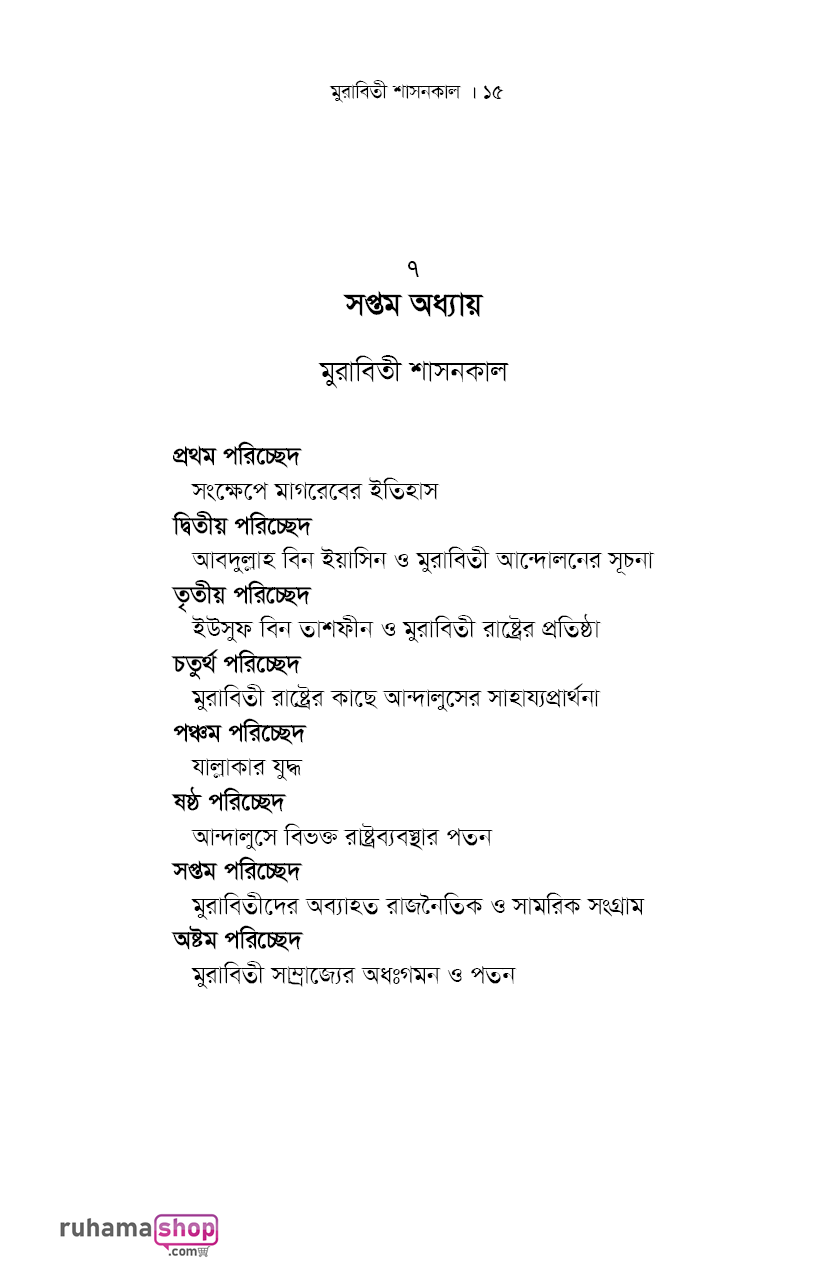 মুরাবিতী শাসনকাল । ১৫
৭
সপ্তম অধ্যায়
মুরাবিতী শাসনকাল
প্রথম পরিচ্ছেদ
সংক্ষেপে মাগরেবের ইতিহাস
দ্বিতীয় পরিচ্ছেদ
আবদুল্লাহ বিন ইয়াসিন ও মুরাবিতী আন্দোলনের সূচনা
তৃতীয় পরিচ্ছেদ
ইউসুফ বিন তাশফীন ও মুরাবিতী রাষ্ট্রের প্রতিষ্ঠা
চতুর্থ পরিচ্ছেদ
মুরাবিতী রাষ্ট্রের কাছে আন্দালুসের সাহায্যপ্রার্থনা
পঞ্চম পরিচ্ছেদ
যাল্লাকার যুদ্ধ
ষষ্ঠ পরিচ্ছেদ
আন্দালুসে বিভক্ত রাষ্ট্রব্যবস্থার পতন
সপ্তম পরিচ্ছেদ
মুরাবিতীদের অব্যাহত রাজনৈতিক ও সামরিক সংগ্রাম
অষ্টম পরিচ্ছেদ
মুরাবিতী সাম্রাজ্যের অধঃগমন ও পতন
ruhamashop
.com